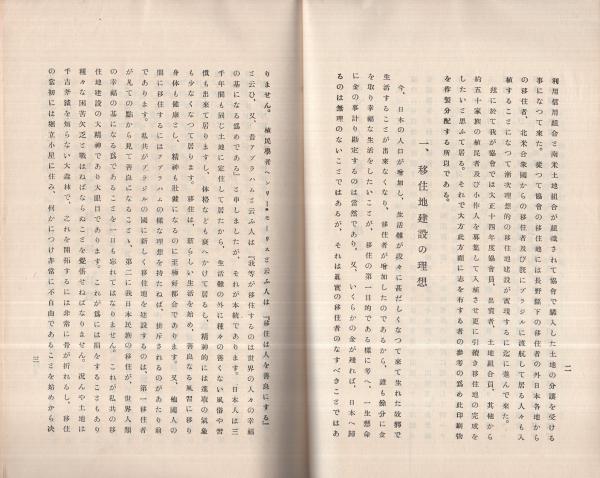 二
利用信用組合と南米土地組合が組織されて協會で購入した土地の分讓を受ける
事になつて來た。從つて協會の移住地には長野縣下の移住者の外日本各地から
の移住者、北米合衆國からの移住者及び既にブラジルに渡航して居る人々も入
植することになつて漸次理想的の移住地建設が實現するに迄に進んで來た。
玆に於て我が協會では大正十四年度協會員、出資者、土地組合員、其他から
約五十家族の植民者及び小作人を募集して入植させ更に引續き移住地の完成を
したいと思ふて居る。それで大方此方面に志を有する者の參考の爲め此印刷物
を作製分配する所以である。
一、移住地建設の理想
今、日本の人口が増加し、生活難が段々に甚だしくなつて來て生れた故鄕で
生活することが出來なくなり、移住者が増加したのであるから、誰も餘分に金
を取り幸福な生活をしたいことが、移住の第一目的である樣に考へ、一生懸命
に金の事計り勘定するのは當然であり、又、いくらかの金が殘れば、日本へ歸
るのは無理のないことではあるが、それは眞實の移住者のなすべきことではあ
りません。植民學者ヘンリー・モーリスと云ふ人は『移住は人を善良にする』
と云ひ、又、昔アブラハムと云ふ人は『我等が移住するのは世界の人々の幸福
の基になる爲めである』と申しましたが、それが本統であります。日本人は三
千年間も同じ土地に定住して居たから、生活難の外に種々の善くない風俗や習
慣も出來て居りますし、体格なども衰へかけて居るし、精神的には進取の氣象
も少なくなつて居ります。移住は、新らしい生活を始め、善良なる風習に移り
身体も健康とし、精神も壯健になるのに至極好都合であります。又、他國人の
間に移住するにはアブラハムの樣な理想を持たねば、排斥されるのがあたり前
であります。私共がブラジルの國に新しく移住地を建設するのは、第一移住者
が凡ての點から見て善良になること、第二に我日本民族の移住が、世界人類
の幸福の基になる爲であることを一日も忘れてはなりません。これが私共の移
住地建設の大精神であり大眼目であります。これが爲には損をすることもあり
種々な困苦欠乏と戰はねばならぬことを覺悟せねばなりません。況んや土地は
千古斧鉞を知らない大森林で、之れを開拓するには非常に骨が折れるし、移住
の當初には堀立小屋に住み、何かにつけ非常に不自由であることを始めから決
三